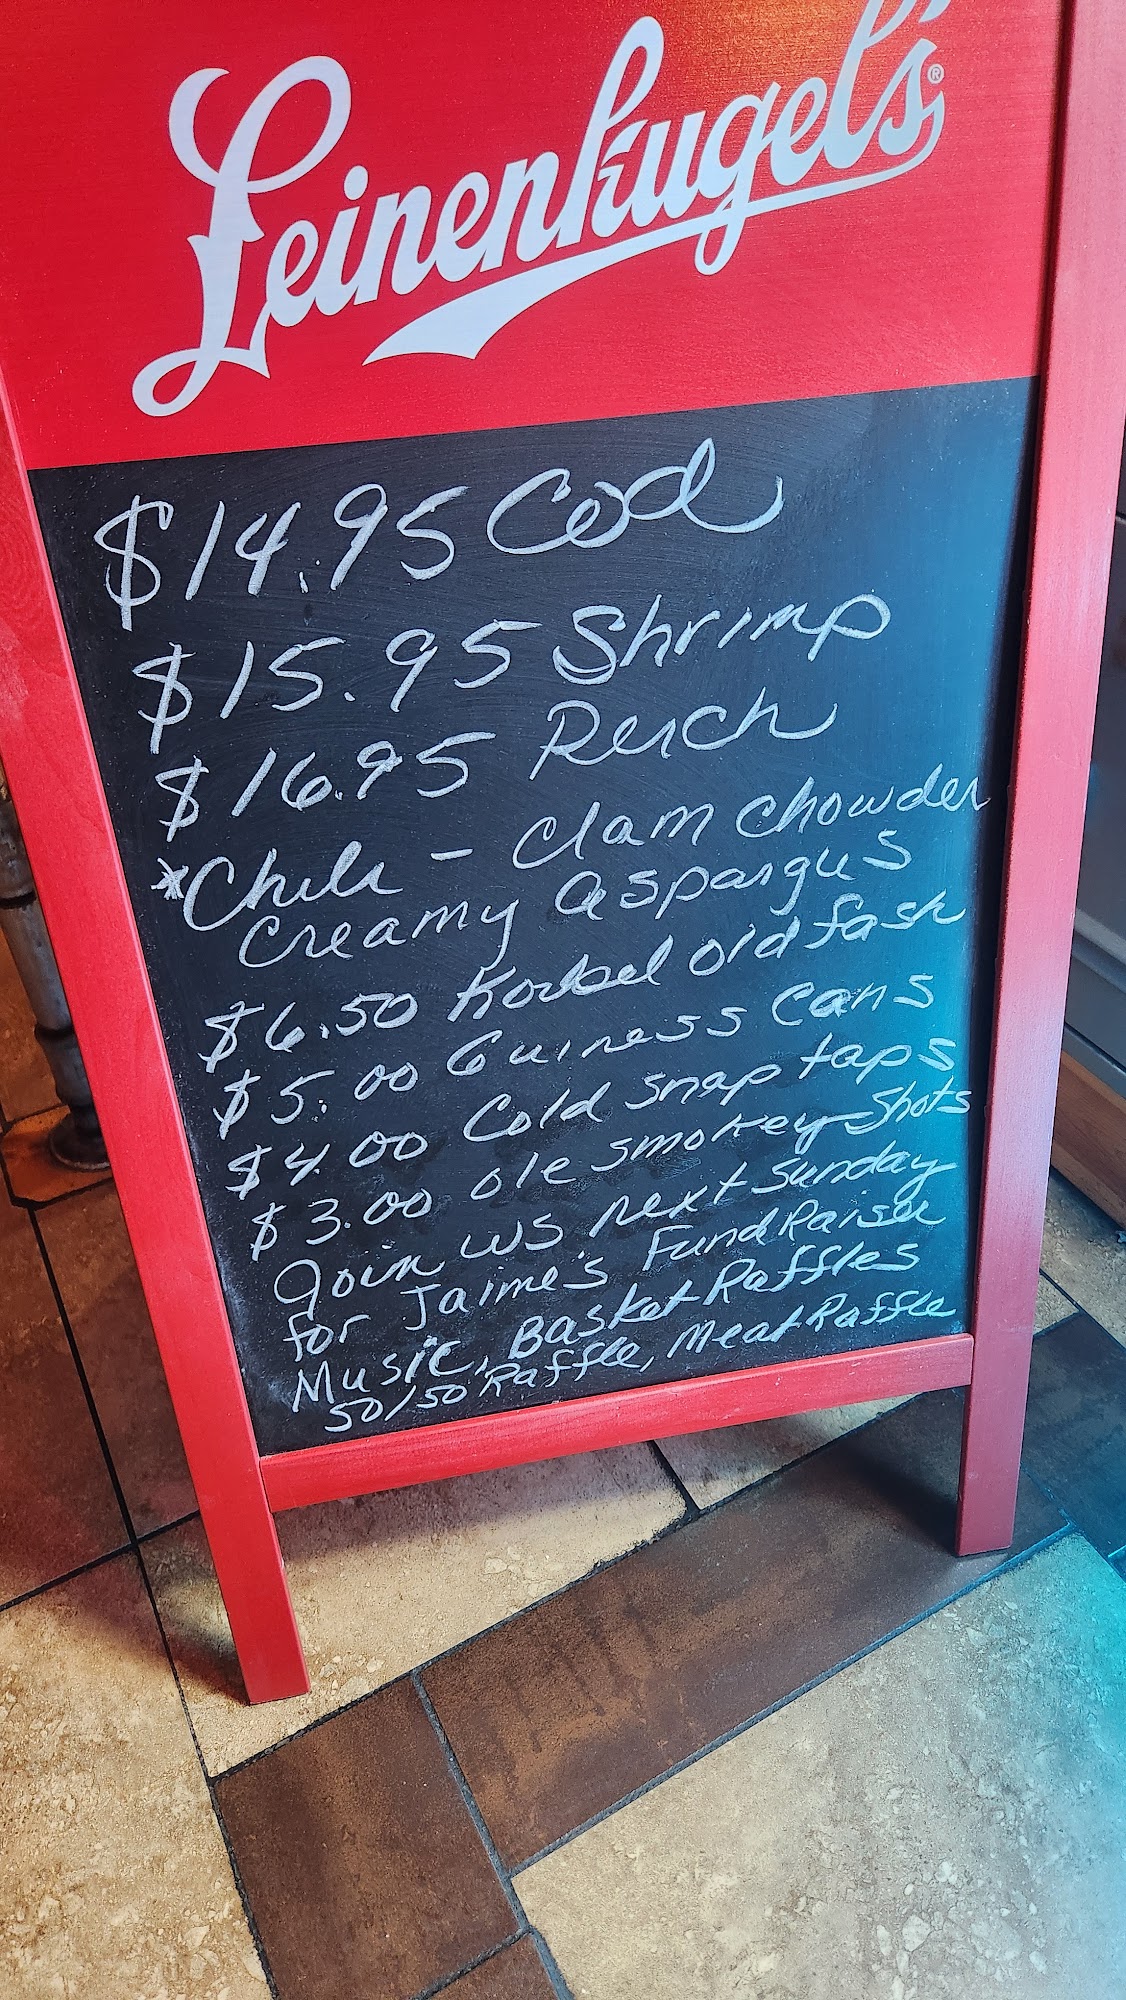 Leinenkugel's®
$14.95 Cod
$15.95 Shrimp
$16.95 Perch
*Chili - Clam chowder
Creamy aspargus
$6.50 Korbel old fash
$5.00 Guiness cans
$4.00 Cold snap taps
$3.00 ole smokey shots
Join us next Sunday
for Jaime's FundRaiser
Music, Basket Raffles
50/50 Raffle, Meat Raffle